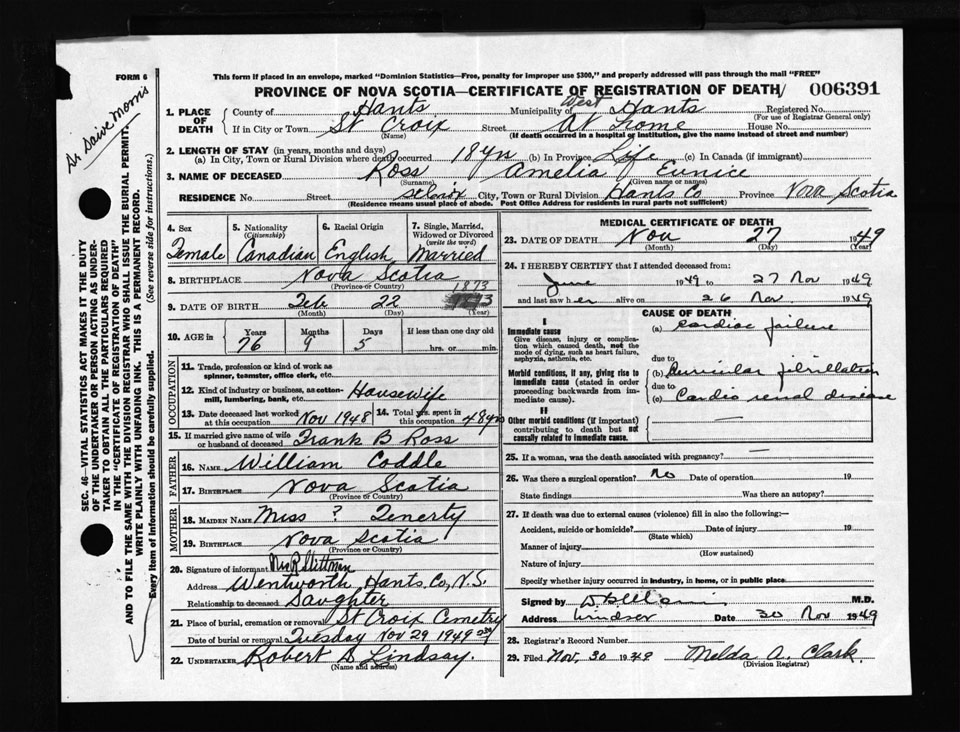 FORM 6
This form if placed in an envelope, marked "Dominion Statistics—Free, penalty for improper use $300," and properly addressed will pass through the mail "FREE"
PROVINCE OF NOVA SCOTIA—CERTIFICATE OF REGISTRATION OF DEATH/ 006391
1. PLACE OF DEATH
County of Hants Municipality of West Hants Registered No.
(For use of Registrar General only)
If in City or Town St Croix Street At Home House No.
(Name) (If death occurred in a hospital or institution, give the name instead of street and number)
2. LENGTH OF STAY (in years, months and days)
(a) In City, Town or Rural Division where death occurred 18 yrs (b) In Province Life (c) In Canada (if immigrant)
3. NAME OF DECEASED Ross Amelia Eunice
(Surname) (Given name or names)
RESIDENCE No. Street St Croix City, Town or Rural Division Hants Co Province Nova Scotia
(Residence means usual place of abode. Post Office Address for residents in rural parts not sufficient)
4. Sex
Female
5. Nationality
(Citizenship)
Canadian
6. Racial Origin
English
7. Single, Married, Widowed or Divorced
(write the word)
Married
8. BIRTHPLACE Nova Scotia
(Province or Country)
1873
9. DATE OF BIRTH Feb 22
(Month) (Day) (Year)
10. AGE in Years Months Days If less than one day old
76 9 5 hrs. or min.
OCCUPATION
11. Trade, profession or kind of work as spinner, teamster, office clerk, etc.
12. Kind of industry or business, as cotton-mill, lumbering, bank, etc. Housewife
13. Date deceased last worked at this occupation Nov 1948 14. Total yrs. spent in this occupation 48
15. If married give name of wife or husband of deceased Frank B Ross
FATHER
16. NAME William Coddle
17. BIRTHPLACE Nova Scotia
(Province or Country)
MOTHER
18. MAIDEN NAME Miss ? Fenerty
19. BIRTHPLACE Nova Scotia
(Province or Country)
20. Signature of informant Mrs R
Address Wentworth, Hants Co, N.S.
Relationship to deceased Daughter
21. Place of burial, cremation or removal St Croix Cemetry
Date of burial or removal Tuesday Nov 29 1949
22. UNDERTAKER Robert S Lindsay.
(Name and address)
MEDICAL CERTIFICATE OF DEATH
23. DATE OF DEATH Nov 27 1949
(Month) (Day) (Year)
24. I HEREBY CERTIFY that I attended deceased from:
June 1949 to 27 Nov 1949
and last saw her alive on 26 Nov. 1949
CAUSE OF DEATH
I
Immediate cause
Give disease, injury or complication which caused death, not the mode of dying, such as heart failure, asphyxia, asthenia, etc.
(a) Cardiac failure
due to
Morbid conditions, if any, giving rise to immediate cause (stated in order proceeding backwards from immediate cause).
(b) Auricular fibrillation
due to
(c) Cardio renal disease
II
Other morbid conditions (if important) contributing to death but not causally related to immediate cause.
25. If a woman, was the death associated with pregnancy?
26. Was there a surgical operation? No Date of operation 19
State findings Was there an autopsy?
27. If death was due to external causes (violence) fill in also the following:—
Accident, suicide or homicide? Date of injury 19
(State which)
Manner of injury
(How sustained)
Nature of injury
Specify whether injury occurred in industry, in home, or in public place
Signed by M.D.
Address Windsor Date 30 Nov 1949
28. Registrar's Record Number
29. Filed Nov, 30 1949 Melda A. Clark.
(Division Registrar)
SEC. 46—VITAL STATISTICS ACT MAKES IT THE DUTY OF THE UNDERTAKER OR PERSON ACTING AS UNDERTAKER TO OBTAIN ALL THE PARTICULARS REQUIRED IN THE "CERTIFICATE OF REGISTRATION OF DEATH" AND TO FILE THE SAME WITH THE DIVISION REGISTRAR WHO SHALL ISSUE THE BURIAL PERMIT.
WRITE PLAINLY WITH UNFADING INK. THIS IS A PERMANENT RECORD.
Every item of information should be carefully supplied. (See reverse side for instructions.)